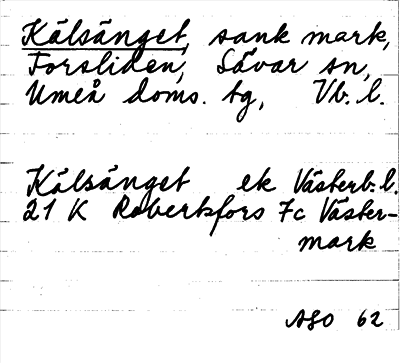 Kälsänget, sank mark,
Forsliden, Sävar sn,
Umeå doms. tg, Vb. l.
Kälsänget ek Västerb. l.
21 K Robertsfors 7c Väster-
mark
ASO 62